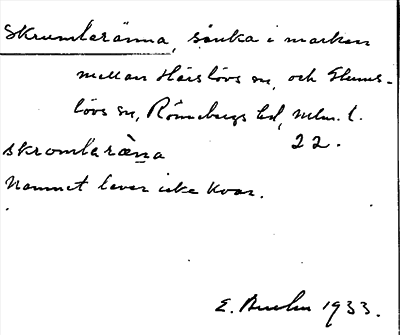 Skrumleränna, sänka i marken
mellan Härslövs sn, och Glums-
lövs sn, Rönnebergs hd, Mlm. l.
22.
skromlaräna
Namnet lever icke kvar.
E. 1933.